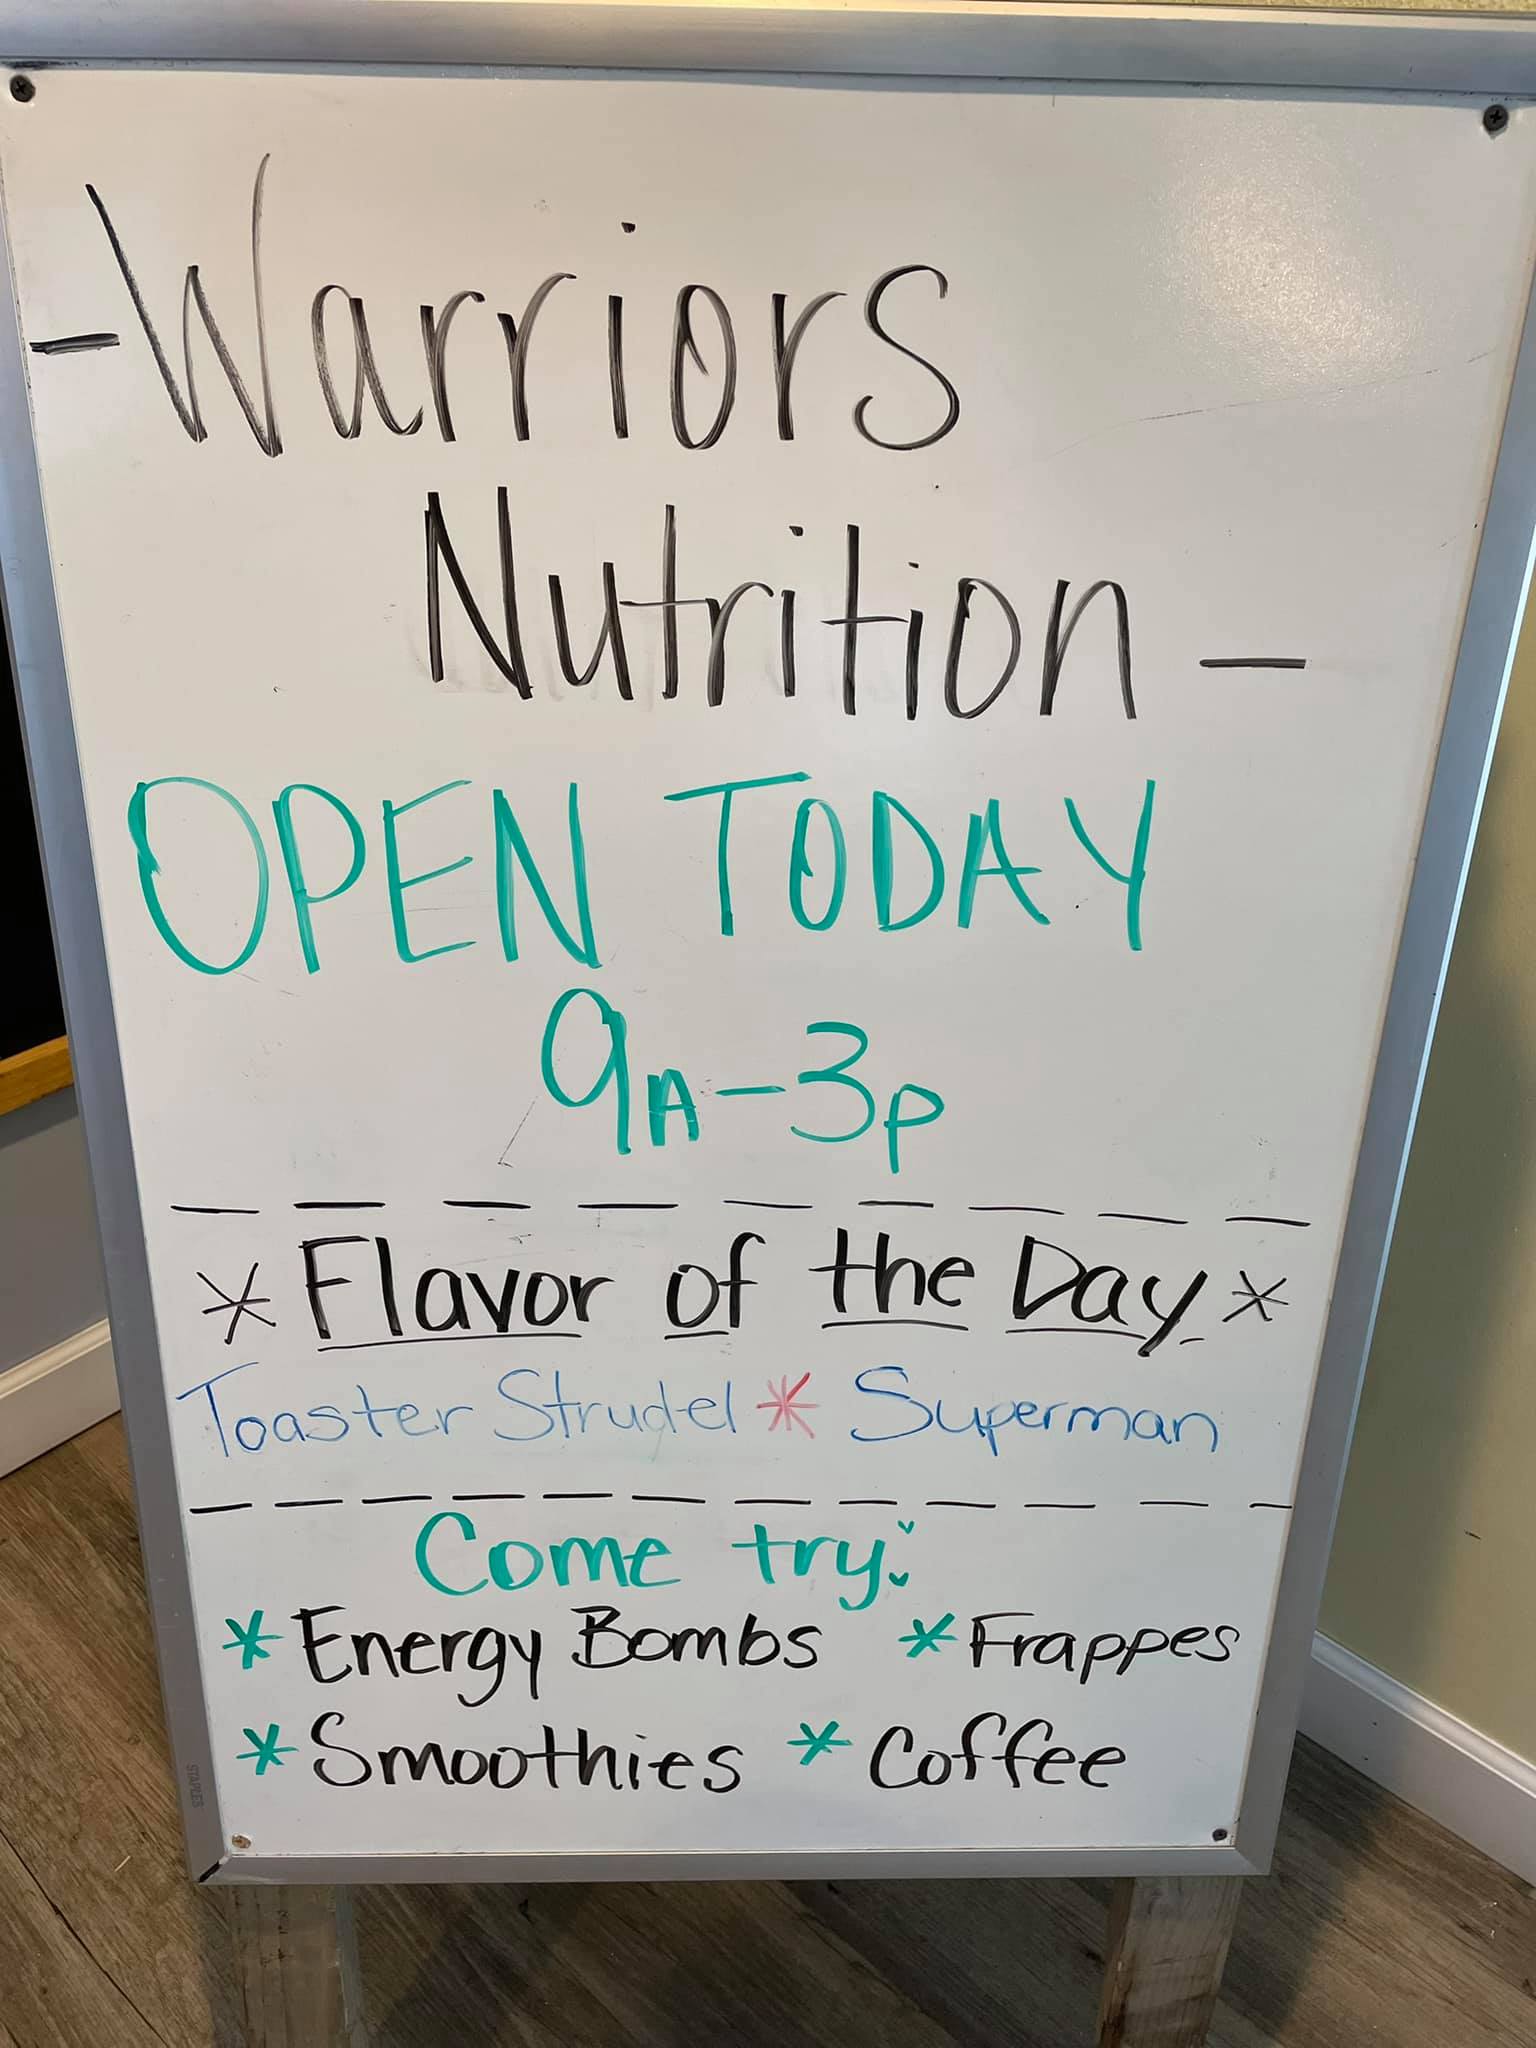 -Warriors
Nutrition-
OPEN TODAY
9A-3P
* Flavor of the Day *
Toaster Strudel * Superman
Come try:
* Energy Bombs * Frappes
* Smoothies * Coffee
STAPLES